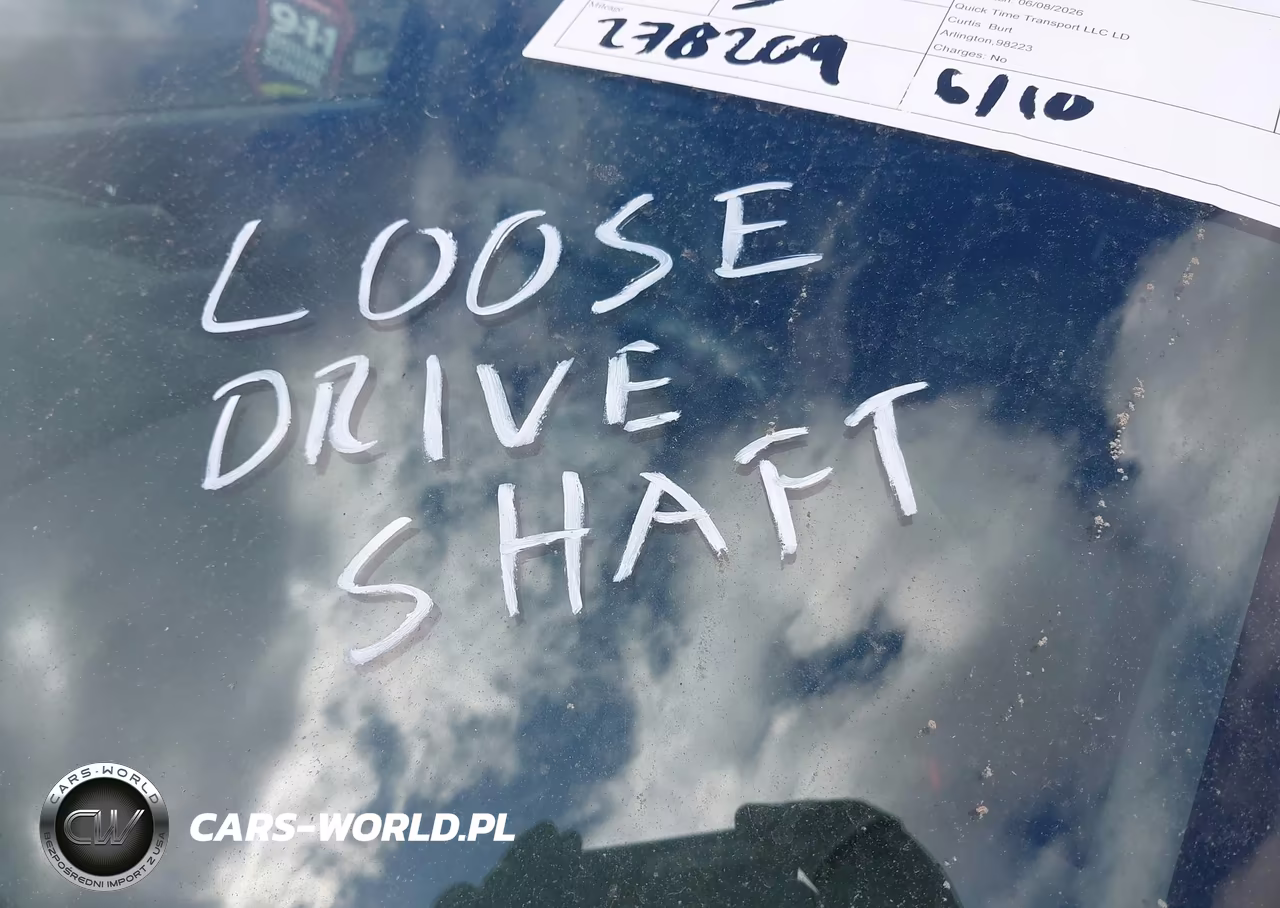 911
Mileage
278209
06/08/2026
Quick Time Transport LLC LD
Curtis Burt
Arlington,98223
Charges: No
6/10
LOOSE
DRIVE
SHAFT
CARS-WORLD
CW
BEZPOŚREDNI IMPORT Z USA
CARS-WORLD.PL